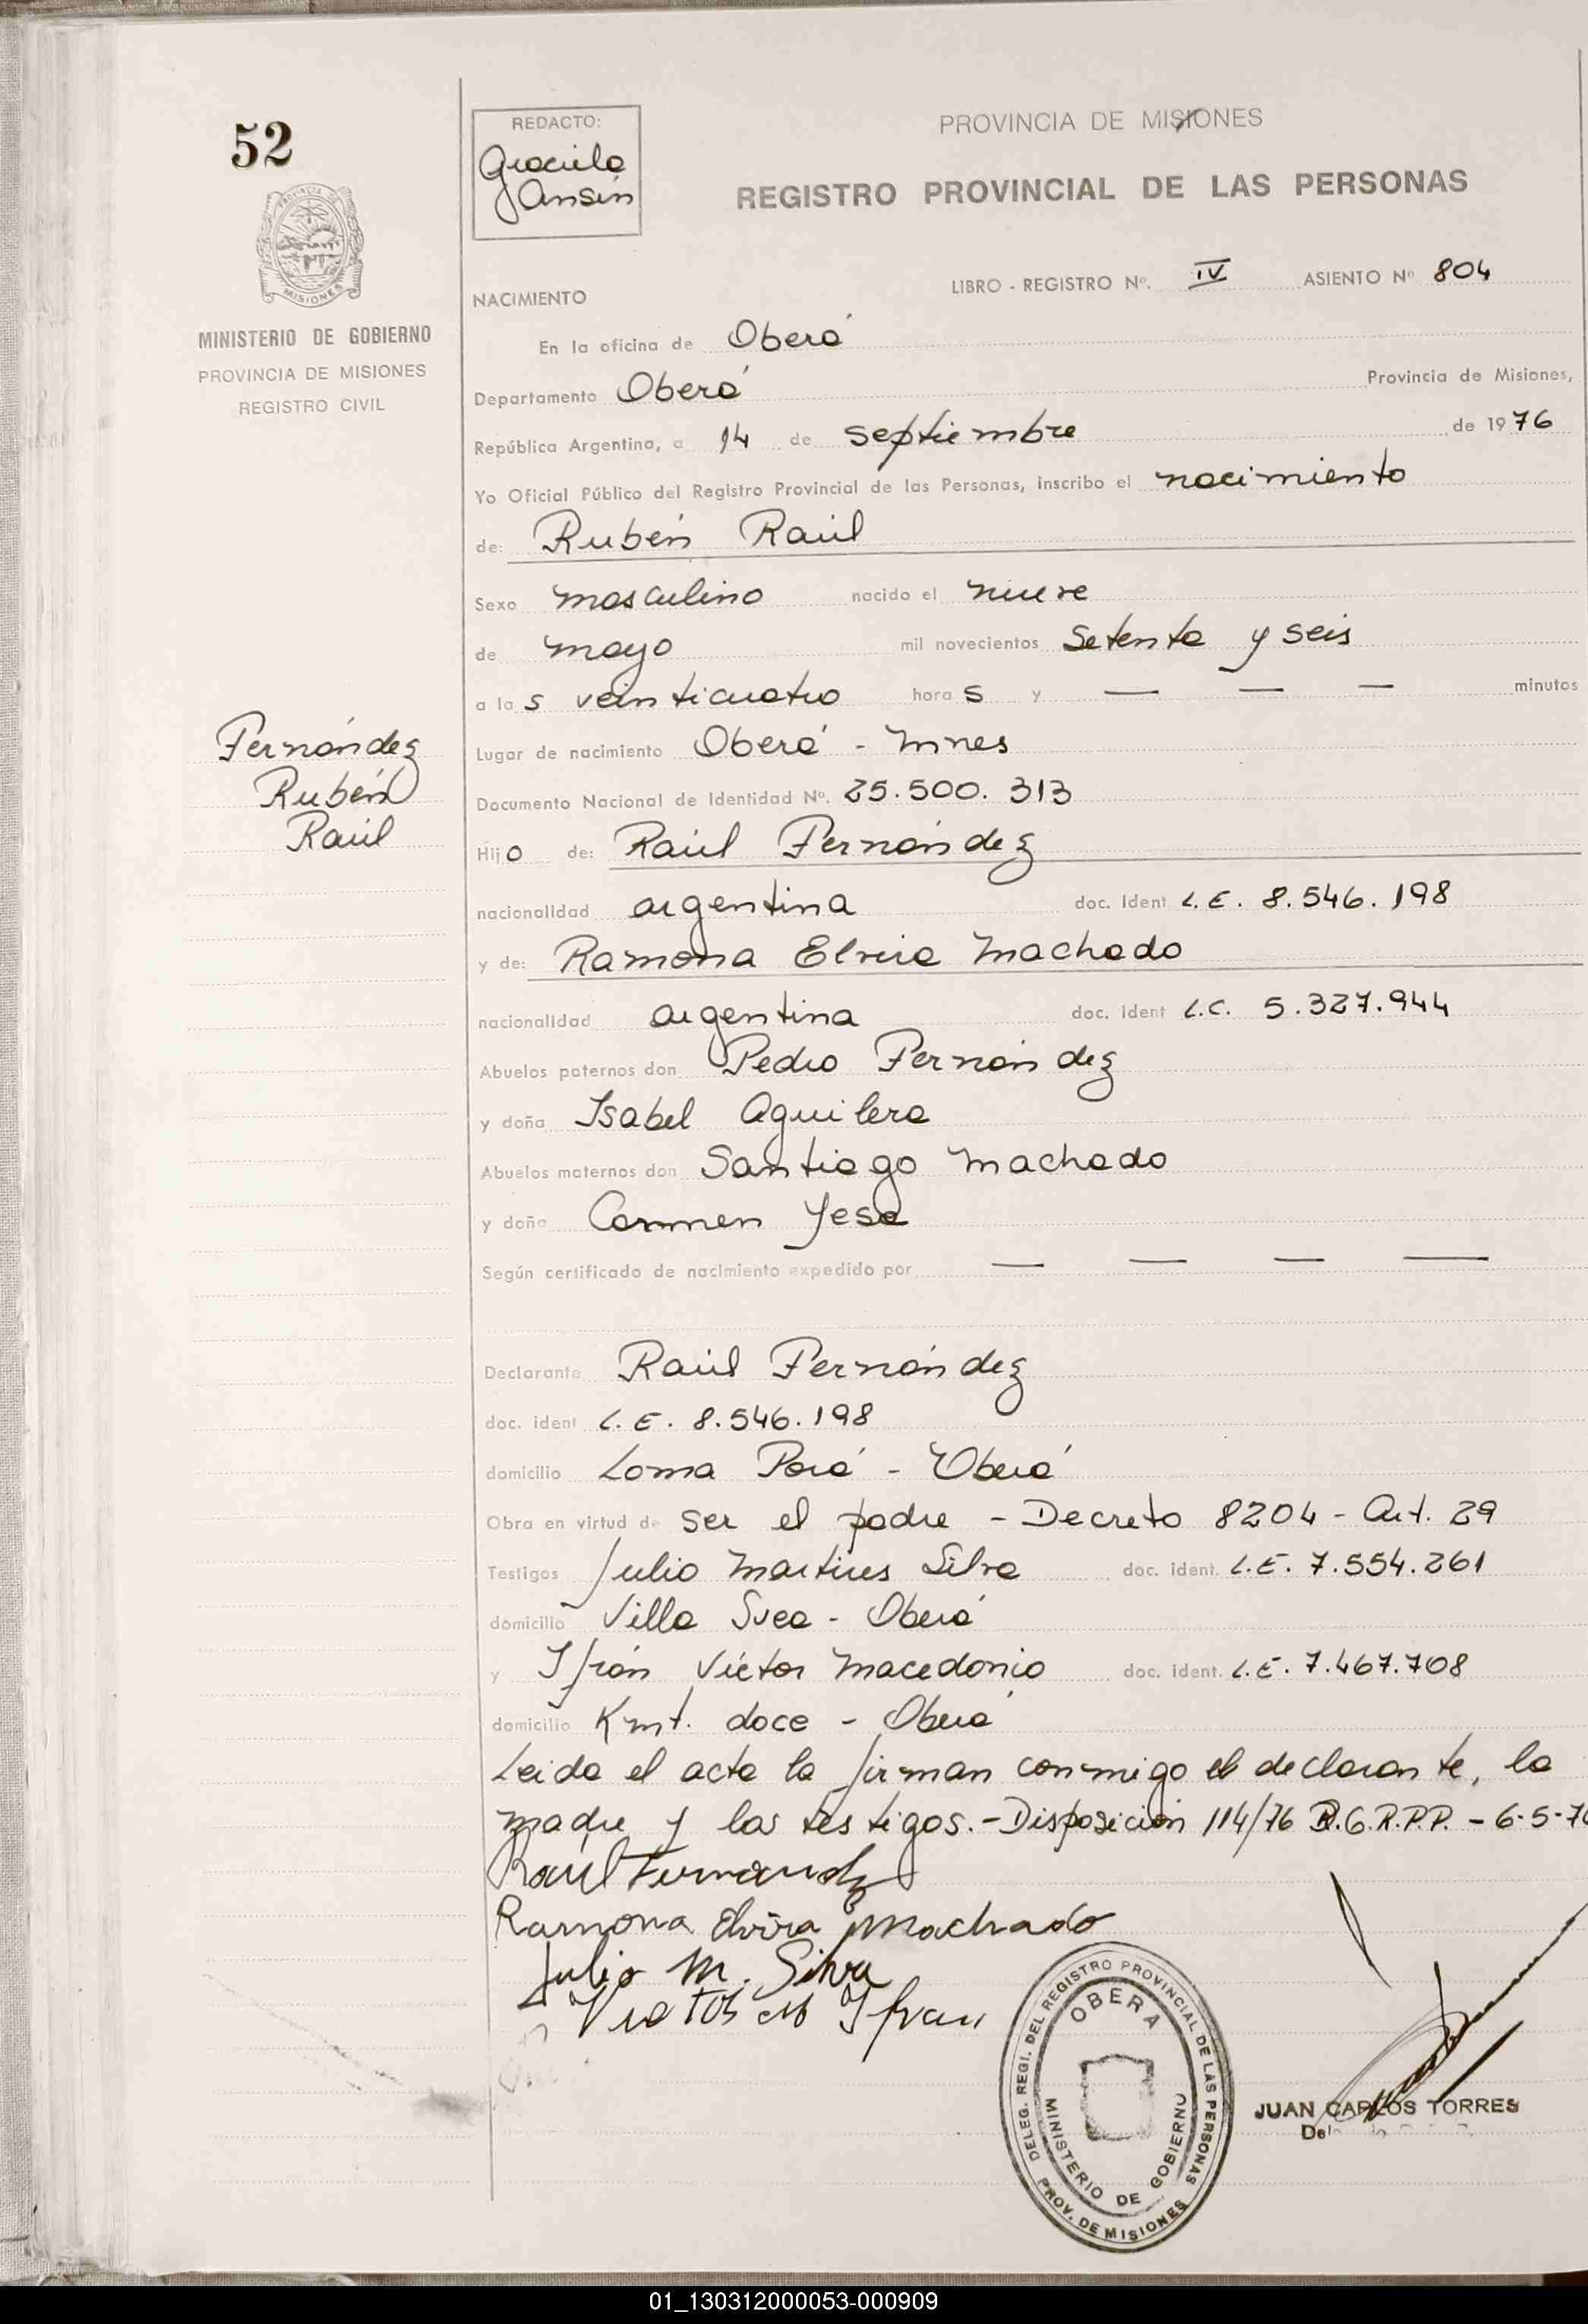 52
REDACTO:
Graciela
Ansin
PROVINCIA DE MISIONES
REGISTRO PROVINCIAL DE LAS PERSONAS
PROVINCIA
MISIONES
MINISTERIO DE GOBIERNO
PROVINCIA DE MISIONES
REGISTRO CIVIL
LIBRO - REGISTRO Nº. IV ASIENTO Nº 804
NACIMIENTO
En la oficina de Oberá
Departamento Oberá Provincia de Misiones,
República Argentina, a 14 de septiembre de 1976
Yo Oficial Público del Registro Provincial de las Personas, inscribo el nacimiento
de: Rubén Raúl
Sexo masculino nacido el nueve
de mayo mil novecientos setenta y seis
a las veinticuatro horas y — — — minutos
Lugar de nacimiento Oberá - Mnes
Documento Nacional de Identidad Nº. 25.500.313
Fernández
Rubén
Raúl
Hijo de: Raúl Fernández
nacionalidad argentina doc. ident L.E. 8.546.198
y de: Ramona Elvira Machado
nacionalidad argentina doc. ident L.C. 5.327.944
Abuelos paternos don Pedro Fernández
y doña Isabel Aguilera
Abuelos maternos don Santiago Machado
y doña Carmen Yesa
Según certificado de nacimiento expedido por — — — —
Declarante Raúl Fernández
doc. ident L.E. 8.546.198
domicilio Loma Porá - Oberá
Obra en virtud de ser el padre - Decreto 8204 - Art. 29
Testigos Julio Martires Silva doc. ident. L.E. 7.554.261
domicilio Villa Svea - Oberá
y Ifrán Víctor Macedonio doc. ident. L.E. 7.467.708
domicilio Kmt. doce - Oberá
Leida el acta la firman conmigo el declarante, la
madre y los testigos. - Disposición 114/76 D.G.R.P.P. - 6-5-76
Raúl Fernandez
Ramona Elvira Machado
Julio M. Silva
Victor M Ifran
DELEG. REGI. DEL REGISTRO PROVINCIAL DE LAS PERSONAS
PROV. DE MISIONES
OBERA
MINISTERIO DE GOBIERNO
JUAN CARLOS TORRES
01_130312000053-000909